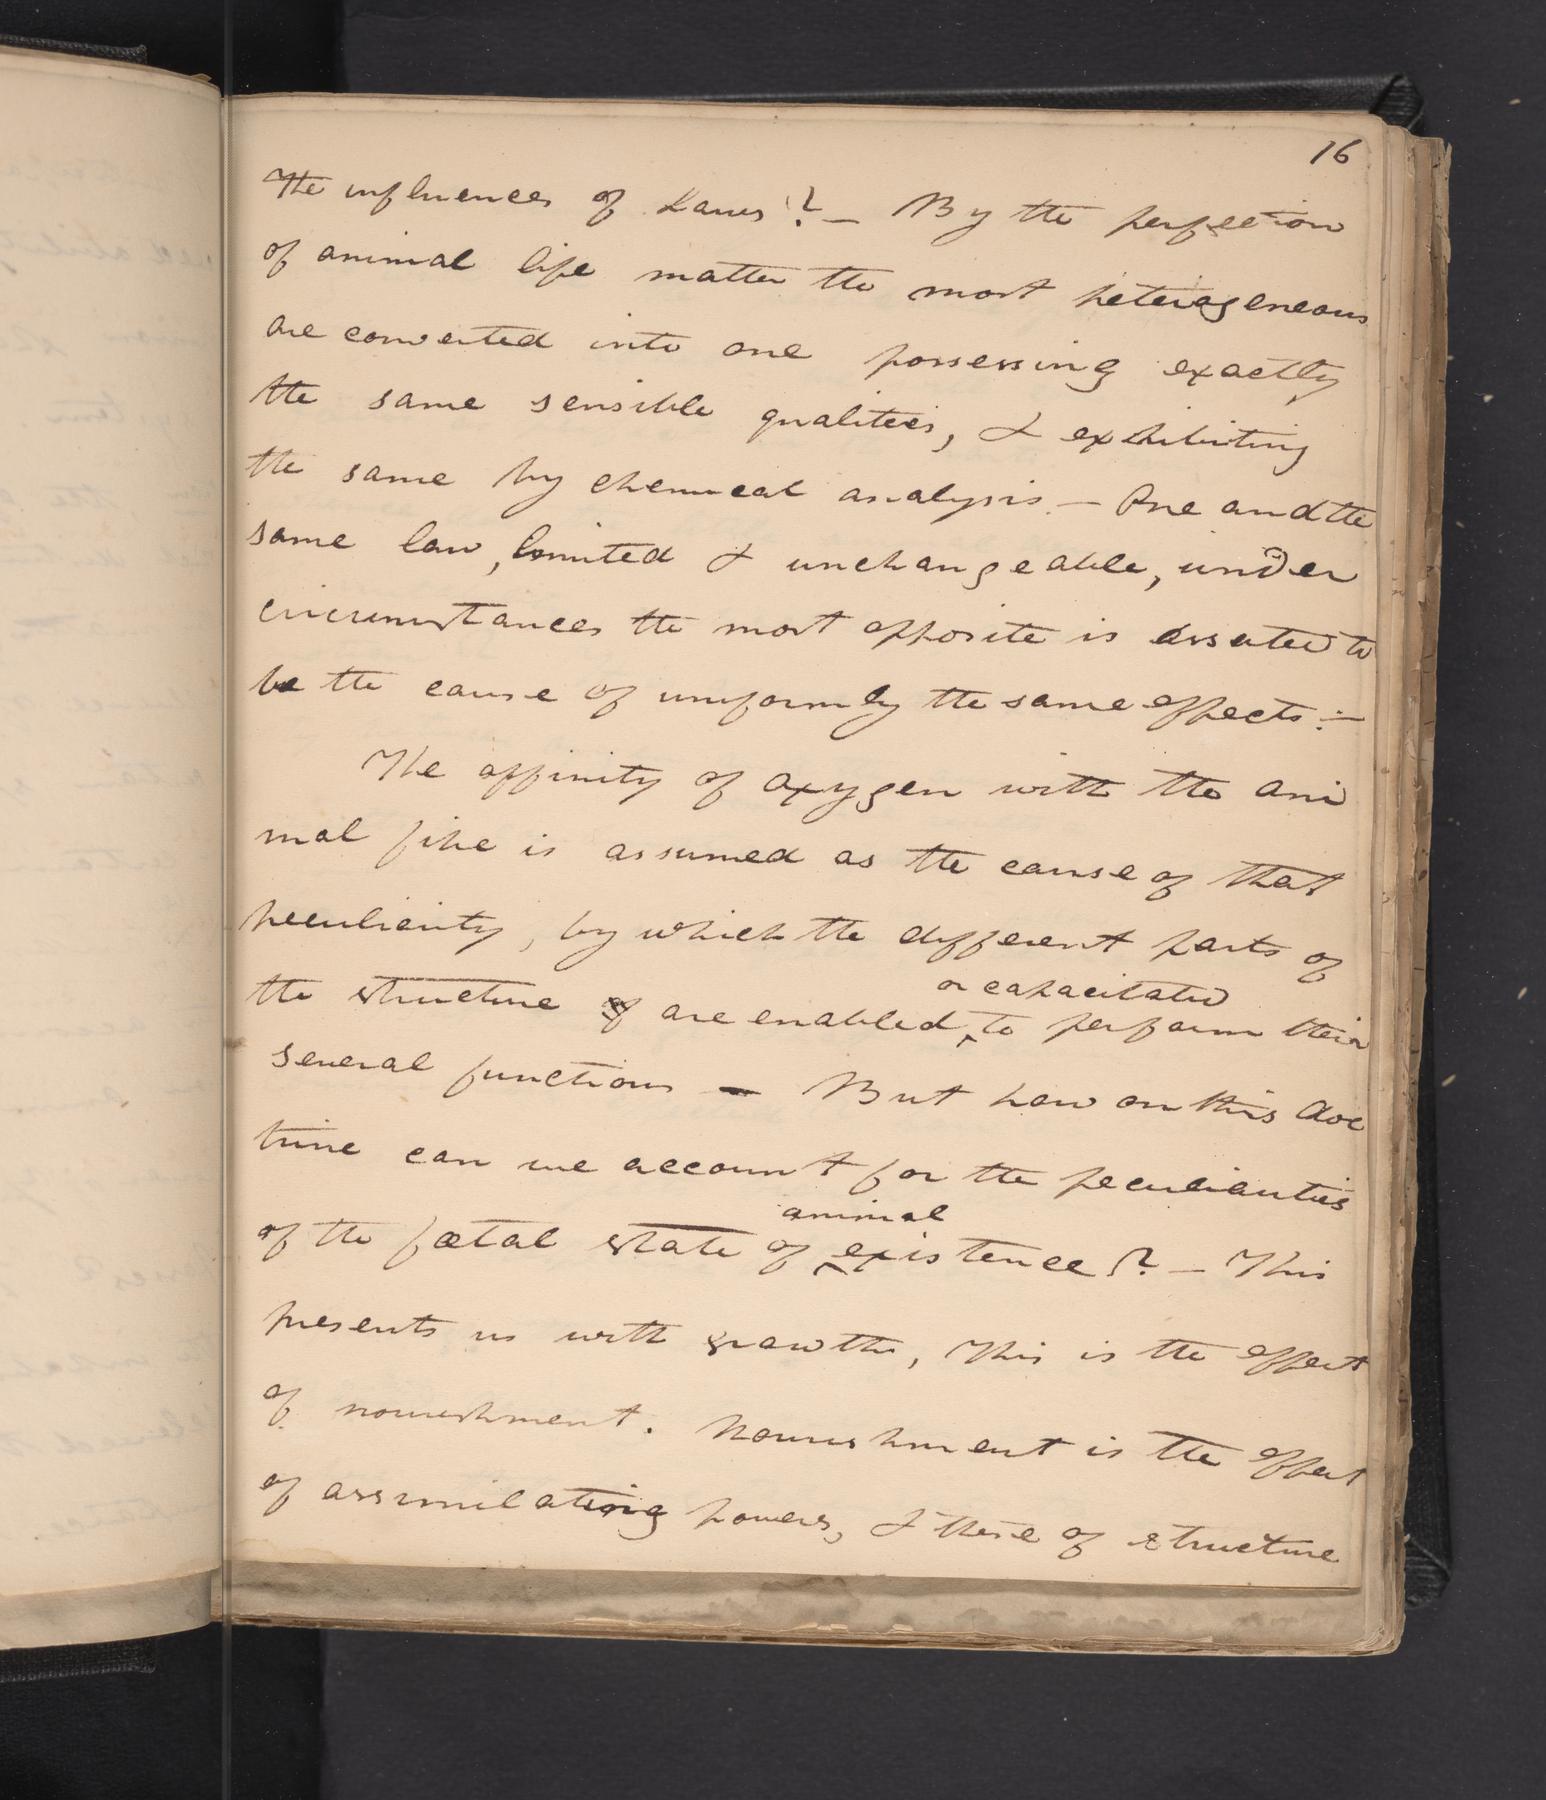 16
The influences of Laws? — By the perfection
of animal life matter the most heterogeneous
are converted into one possessing exactly
the same sensible qualities, & exhibiting
the same by chemical analysis. — One and the
same law, limited & unchangeable, under
circumstances the most opposite is asserted to
be the cause of uniformly the same effects :—
The affinity of oxygen with the ani
mal fibre is assumed as the cause of that
peculiarity, by which the different parts of
or capacitated
the structure of are enabled ^ to perform their
several functions — But how on this doc
trine can we account for the peculiarities
animal
of the fœtal state of ^ existence? — This
presents us with growth, This is the effect
of nourishment. Nourishment is the effect
of assimilating powers, & these of structure